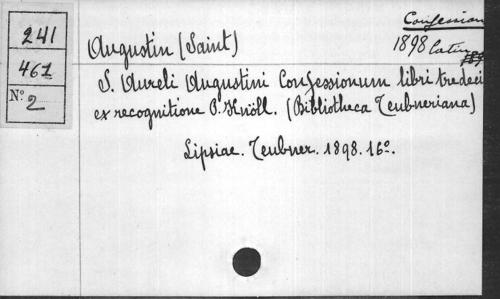 241
461
Nº 2
Confession
1898 latin
Augustin (Saint)
S. Aureli Augustini Confessionum libri tredeci
ex recognitione P. Knöll. (Bibliotheca Teubneriana)
Lipsiae. Teubner. 1898. 16º.